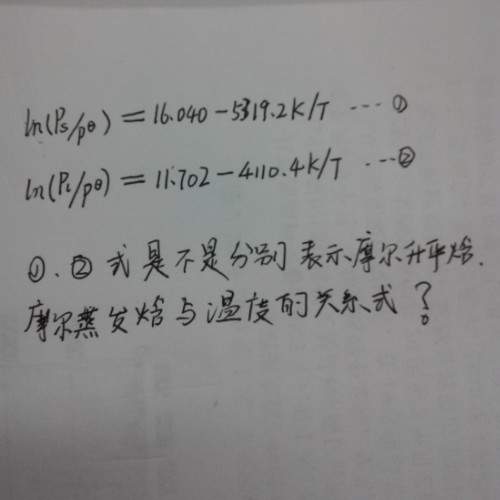 ln(Ps/pθ) = 16.040 - 5319.2K/T ···①
ln(Pl/pθ) = 11.702 - 4110.4K/T ···②
①、②式是不是分别表示摩尔升华焓、
摩尔蒸发焓与温度的关系式?